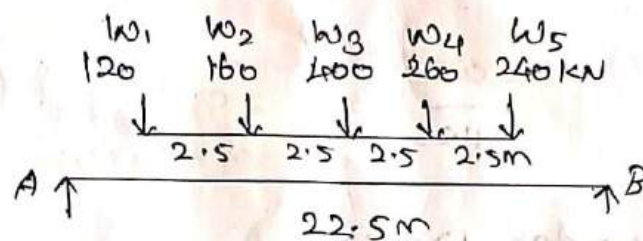 W1 W2 W3 W4 W5
120 160 400 260 240 KN
2.5 2.5 2.5 2.5m
A B
22.5m